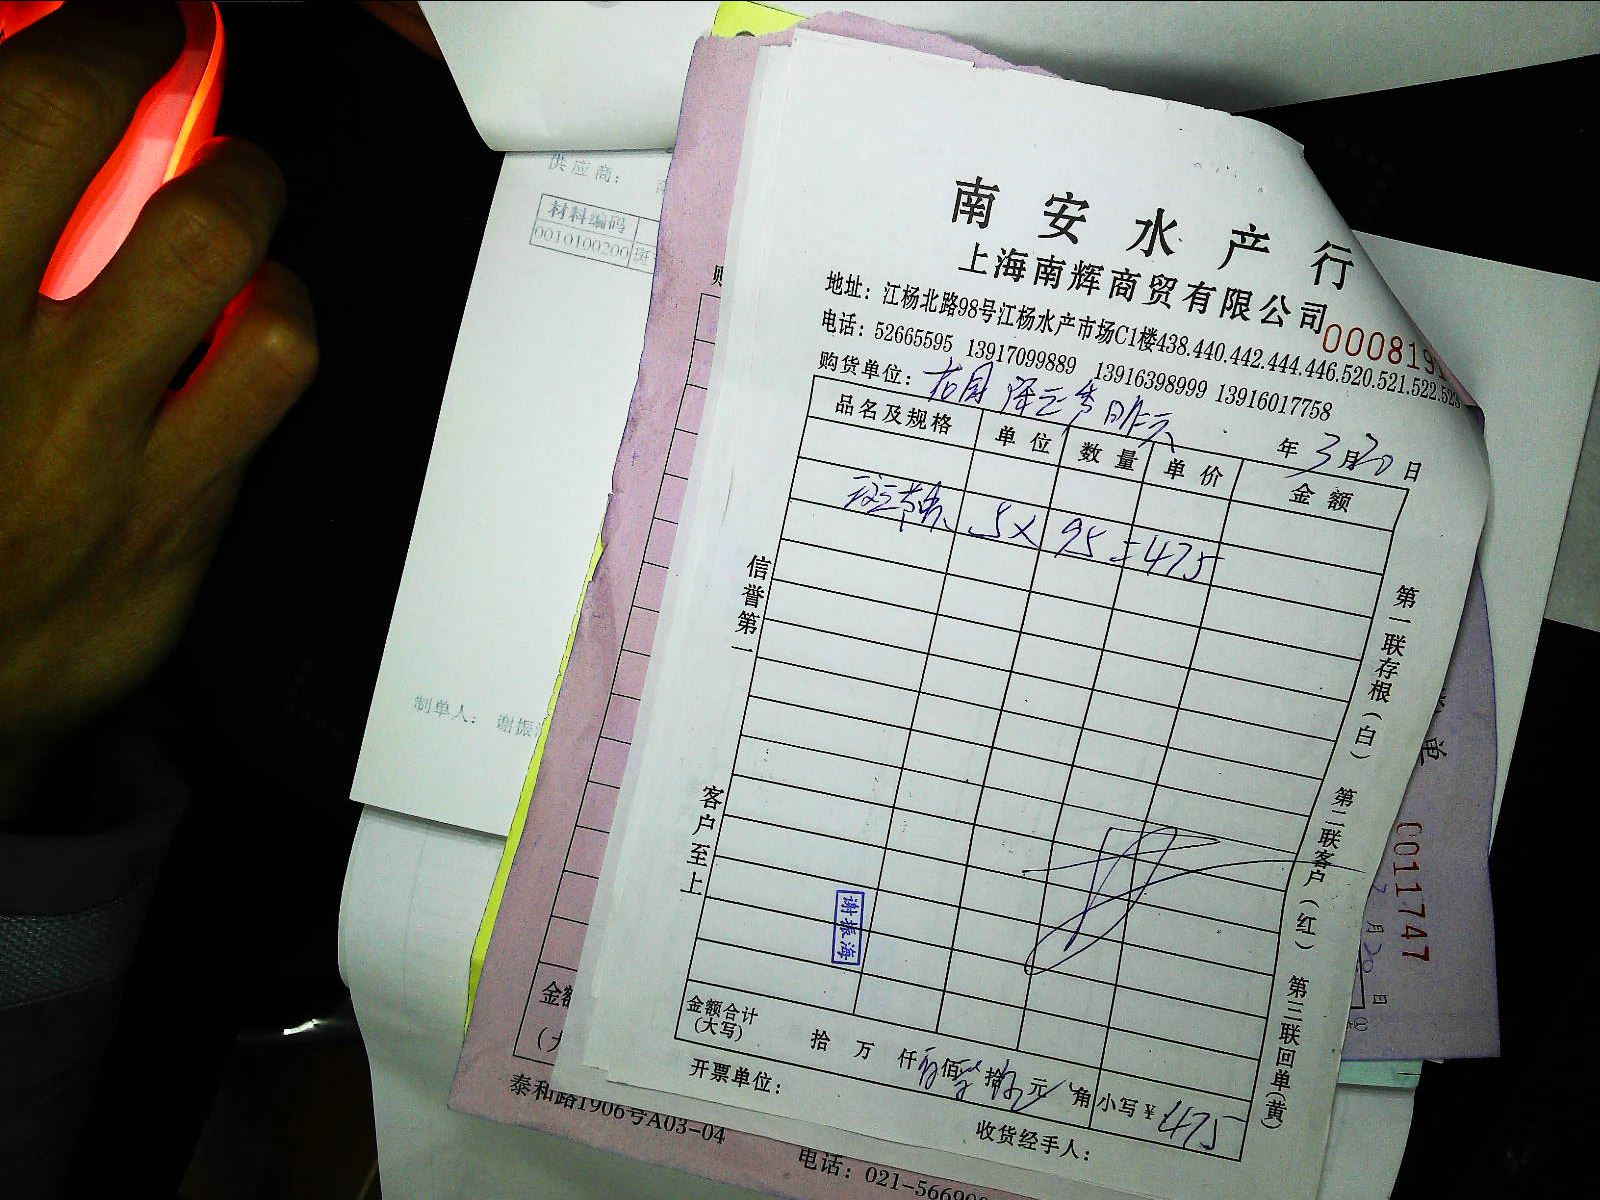 南安水产行
上海南辉商贸有限公司
地址：江杨北路98号江杨水产市场C1楼438.440.442.444.446.520.521.522.523
000819
电话：52665595 13917099889 13916398999 13916017758
购货单位：
年 3月20日
品名及规格 单位 数量 单价 金额
5× 95=475
信誉第一
客户至上
第一联存根（白） 第二联客户（红） 第三联回单（黄）
谢振海
金额合计（大写） 拾 万 仟 佰 拾 元 角 小写￥475
开票单位：
收货经手人：
供应商：
材料编码
0010100200
制单人： 谢振
0011747
月20日
泰和路1906号A03-04
电话：021-56690